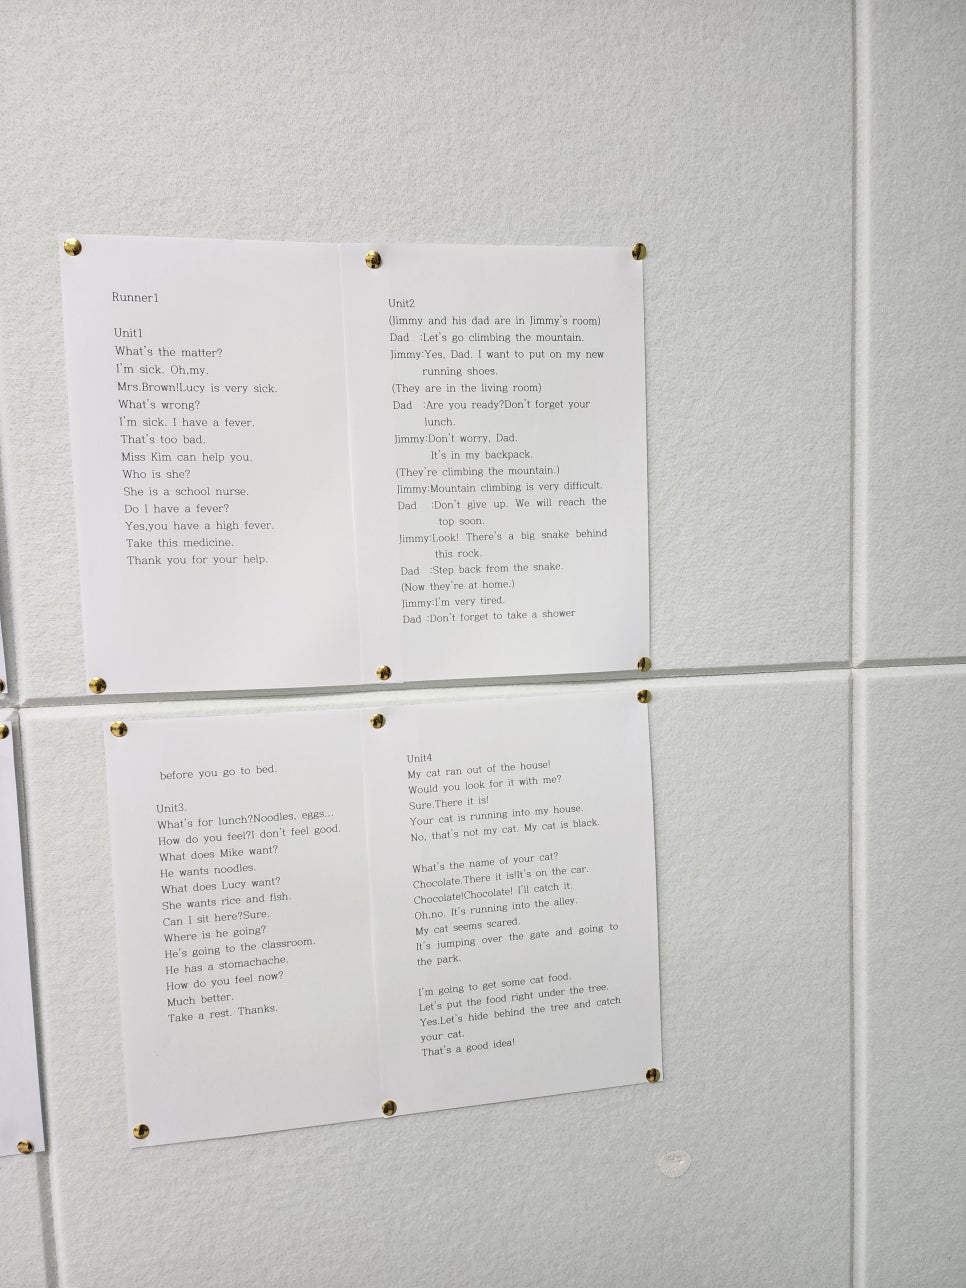 Runner1
Unit1
What's the matter?
I'm sick. Oh,my.
Mrs.Brown!Lucy is very sick.
What's wrong?
I'm sick. I have a fever.
That's too bad.
Miss Kim can help you.
Who is she?
She is a school nurse.
Do I have a fever?
Yes,you have a high fever.
Take this medicine.
Thank you for your help.
Unit2
(Jimmy and his dad are in Jimmy's room)
Dad :Let's go climbing the mountain.
Jimmy:Yes, Dad. I want to put on my new
running shoes.
(They are in the living room)
Dad :Are you ready?Don't forget your
lunch.
Jimmy:Don't worry, Dad.
It's in my backpack.
(They're climbing the mountain.)
Jimmy:Mountain climbing is very difficult.
Dad :Don't give up. We will reach the
top soon.
Jimmy:Look! There's a big snake behind
this rock.
Dad :Step back from the snake.
(Now they're at home.)
Jimmy:I'm very tired.
Dad :Don't forget to take a shower
before you go to bed.
Unit3.
What's for lunch?Noodles, eggs...
How do you feel?I don't feel good.
What does Mike want?
He wants noodles.
What does Lucy want?
She wants rice and fish.
Can I sit here?Sure.
Where is he going?
He's going to the classroom.
He has a stomachache.
How do you feel now?
Much better.
Take a rest. Thanks.
Unit4
My cat ran out of the house!
Would you look for it with me?
Sure.There it is!
Your cat is running into my house.
No, that's not my cat. My cat is black.
What's the name of your cat?
Chocolate.There it is!It's on the car.
Chocolate!Chocolate! I'll catch it.
Oh,no. It's running into the alley.
My cat seems scared.
It's jumping over the gate and going to
the park.
I'm going to get some cat food.
Let's put the food right under the tree.
Yes.Let's hide behind the tree and catch
your cat.
That's a good idea!